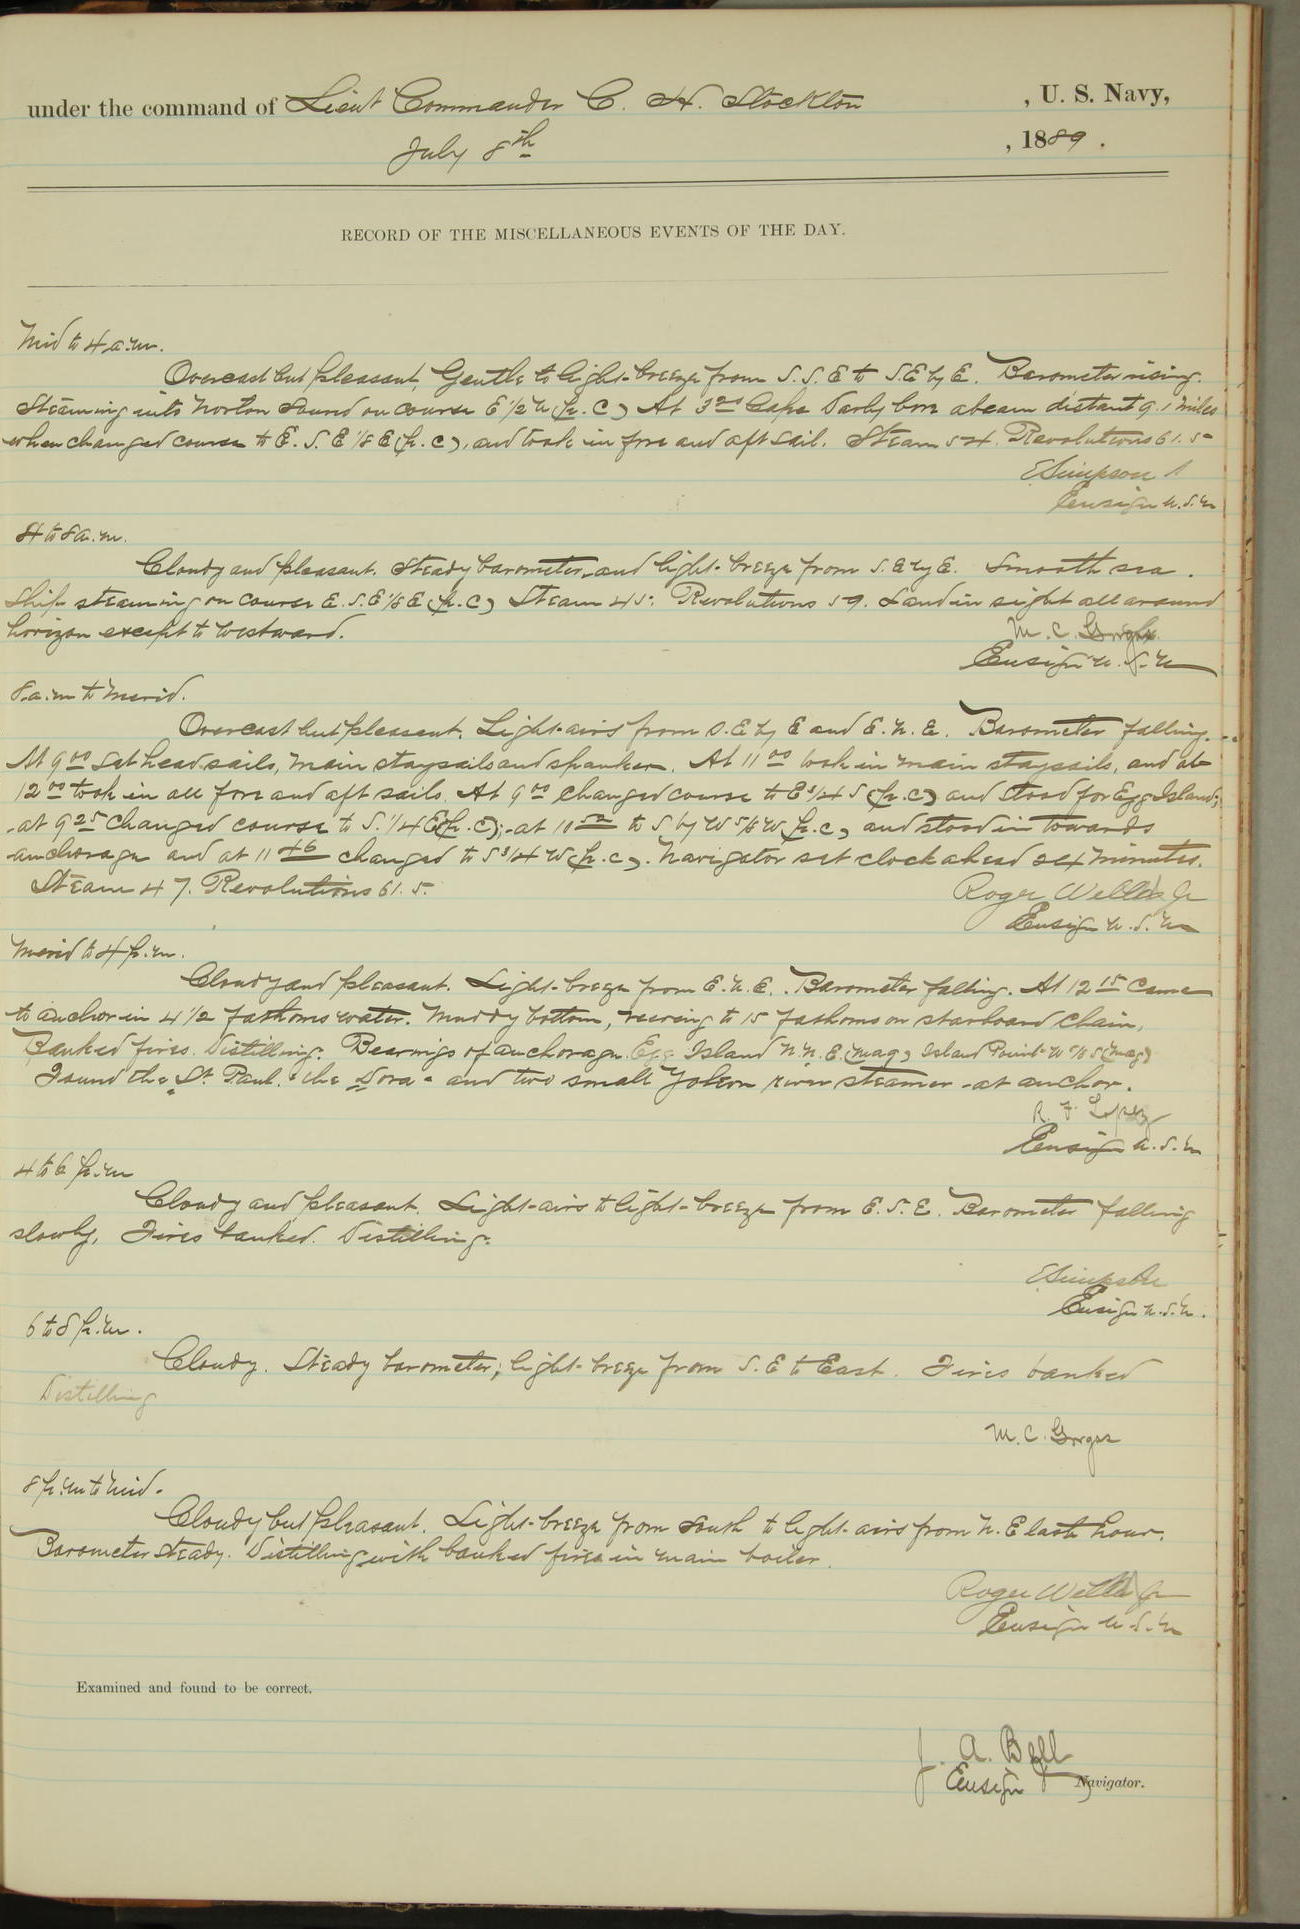 under the command of Lieut Commander C. H. Stockton , U. S. Navy,
July 8th , 1889 .
RECORD OF THE MISCELLANEOUS EVENTS OF THE DAY.
Mid to 4 a.m.
Overcast but pleasant, Gentle to light breeze from S. S. E to S.E by E. Barometer rising.
Steaming into Norton Sound on course E 1/2 N (p. c) At 3 20 Cape Darby bore abeam distant 9.1 miles
when changed course to E. S. E 1/8 E (p. c), and took in fore and aft sail. Steam 54. Revolutions 61.5
E Simpson
Ensign U.S.N
4 to 8 a.m.
Cloudy and pleasant. Steady barometer and light breeze from S.E by E. Smooth sea.
Ship steaming on course E. S. E 1/8 E (p. c) Steam 45. Revolutions 59. Land in sight all around
horizon except to westward.
M. C. Gorgas
Ensign U. S. N
8 a.m to Merid.
Overcast but pleasant. Light airs from S. E by E and E. N. E. Barometer falling.
At 9 00 Set head sails, main staysails and spanker. At 11 00 took in main staysails, and at
12 00 took in all fore and aft sails. At 9 00 changed course to E 3/4 S (p. c) and stood for Egg Island;
at 9 25 changed course to S. 1/4 E (p. c); at 10 52 to S by W 5/8 W (p. c, and stood in towards
anchorage and at 11 46 changed to S 3/4 W (p. c). Navigator set clock ahead 24 minutes.
Steam 47. Revolutions 61.5.
Roger Welles Jr
Ensign U. S. N
Merid to 4 p.m.
Cloudy and pleasant. Light breeze from E. N. E. Barometer falling. At 12 15 Came
to anchor in 4 1/2 fathoms water. Muddy bottom, veering to 15 fathoms on starboard chain.
Banked fires. Distilling. Bearings of anchorage. Egg Island N. N. E. (mag) Island Point W 5/8 S (mag)
Found the St. Paul. the Dora and two small Yukon river steamer at anchor.
R. F. Lopez
Ensign U. S. N
4 to 6 p.m
Cloudy and pleasant. Light airs to light breeze from E. S. E. Barometer falling
slowly, Fires banked. Distilling.
E Simpson
Ensign U. S. N.
6 to 8 p.m.
Cloudy. Steady barometer; light breeze from S. E to East. Fires banked
Distilling
M. C. Gorgas
8 p.m to Mid.
Cloudy but pleasant. Light breeze from South to light airs from N. E last hour.
Barometer steady. Distilling with banked fires in main boiler.
Roger Welles Jr
Ensign U. S. N
Examined and found to be correct.
J. A. Bell
Ensign Navigator.